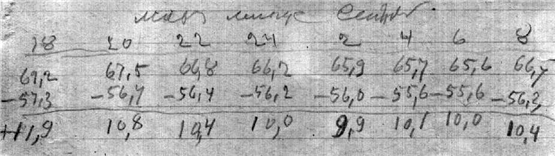 18 20 22 24 2 4 6 8
69,2 67,5 66,8 66,2 65,9 65,7 65,6 66,7
-57,3 -56,7 -56,4 -56,2 -56,0 -55,6 -55,6 -56,3
+11,9 10,8 10,4 10,0 9,9 10,1 10,0 10,4